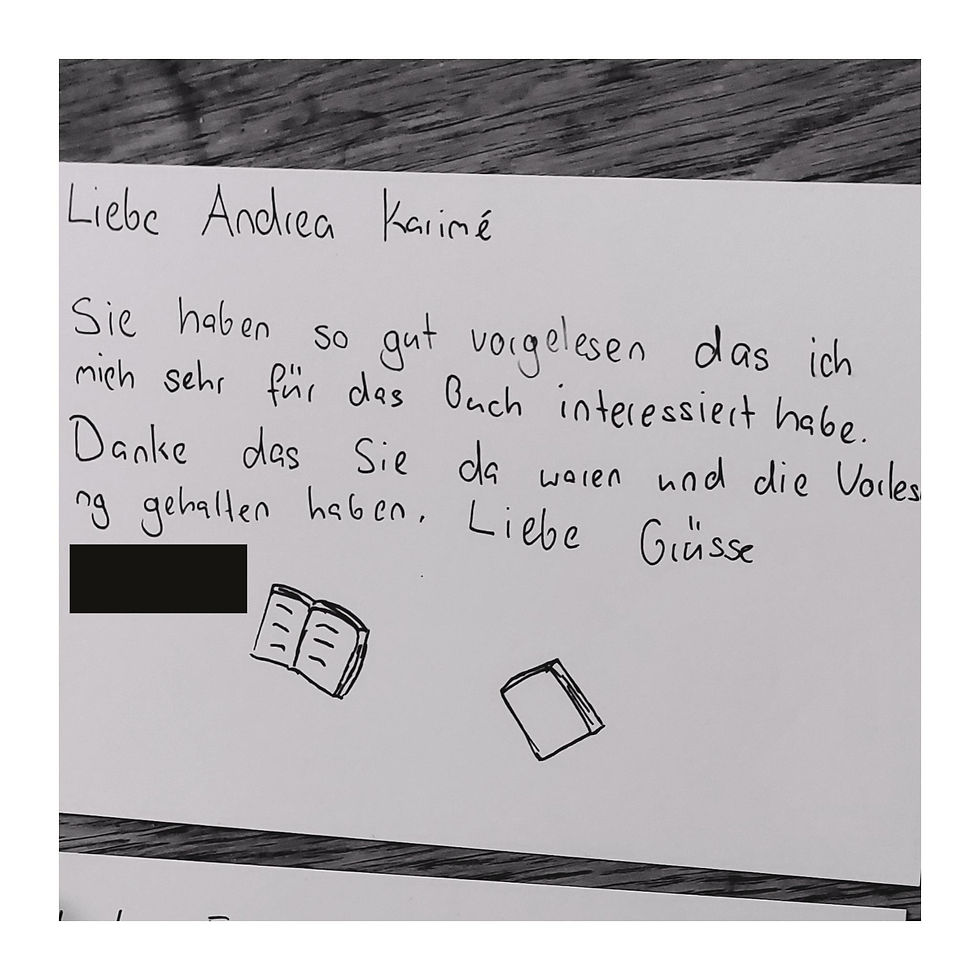 Liebe Andrea Karimé
Sie haben so gut vorgelesen das ich
mich sehr für das Buch interessiert habe.
Danke das Sie da waren und die Vorles
ng gehalten haben. Liebe Grüsse